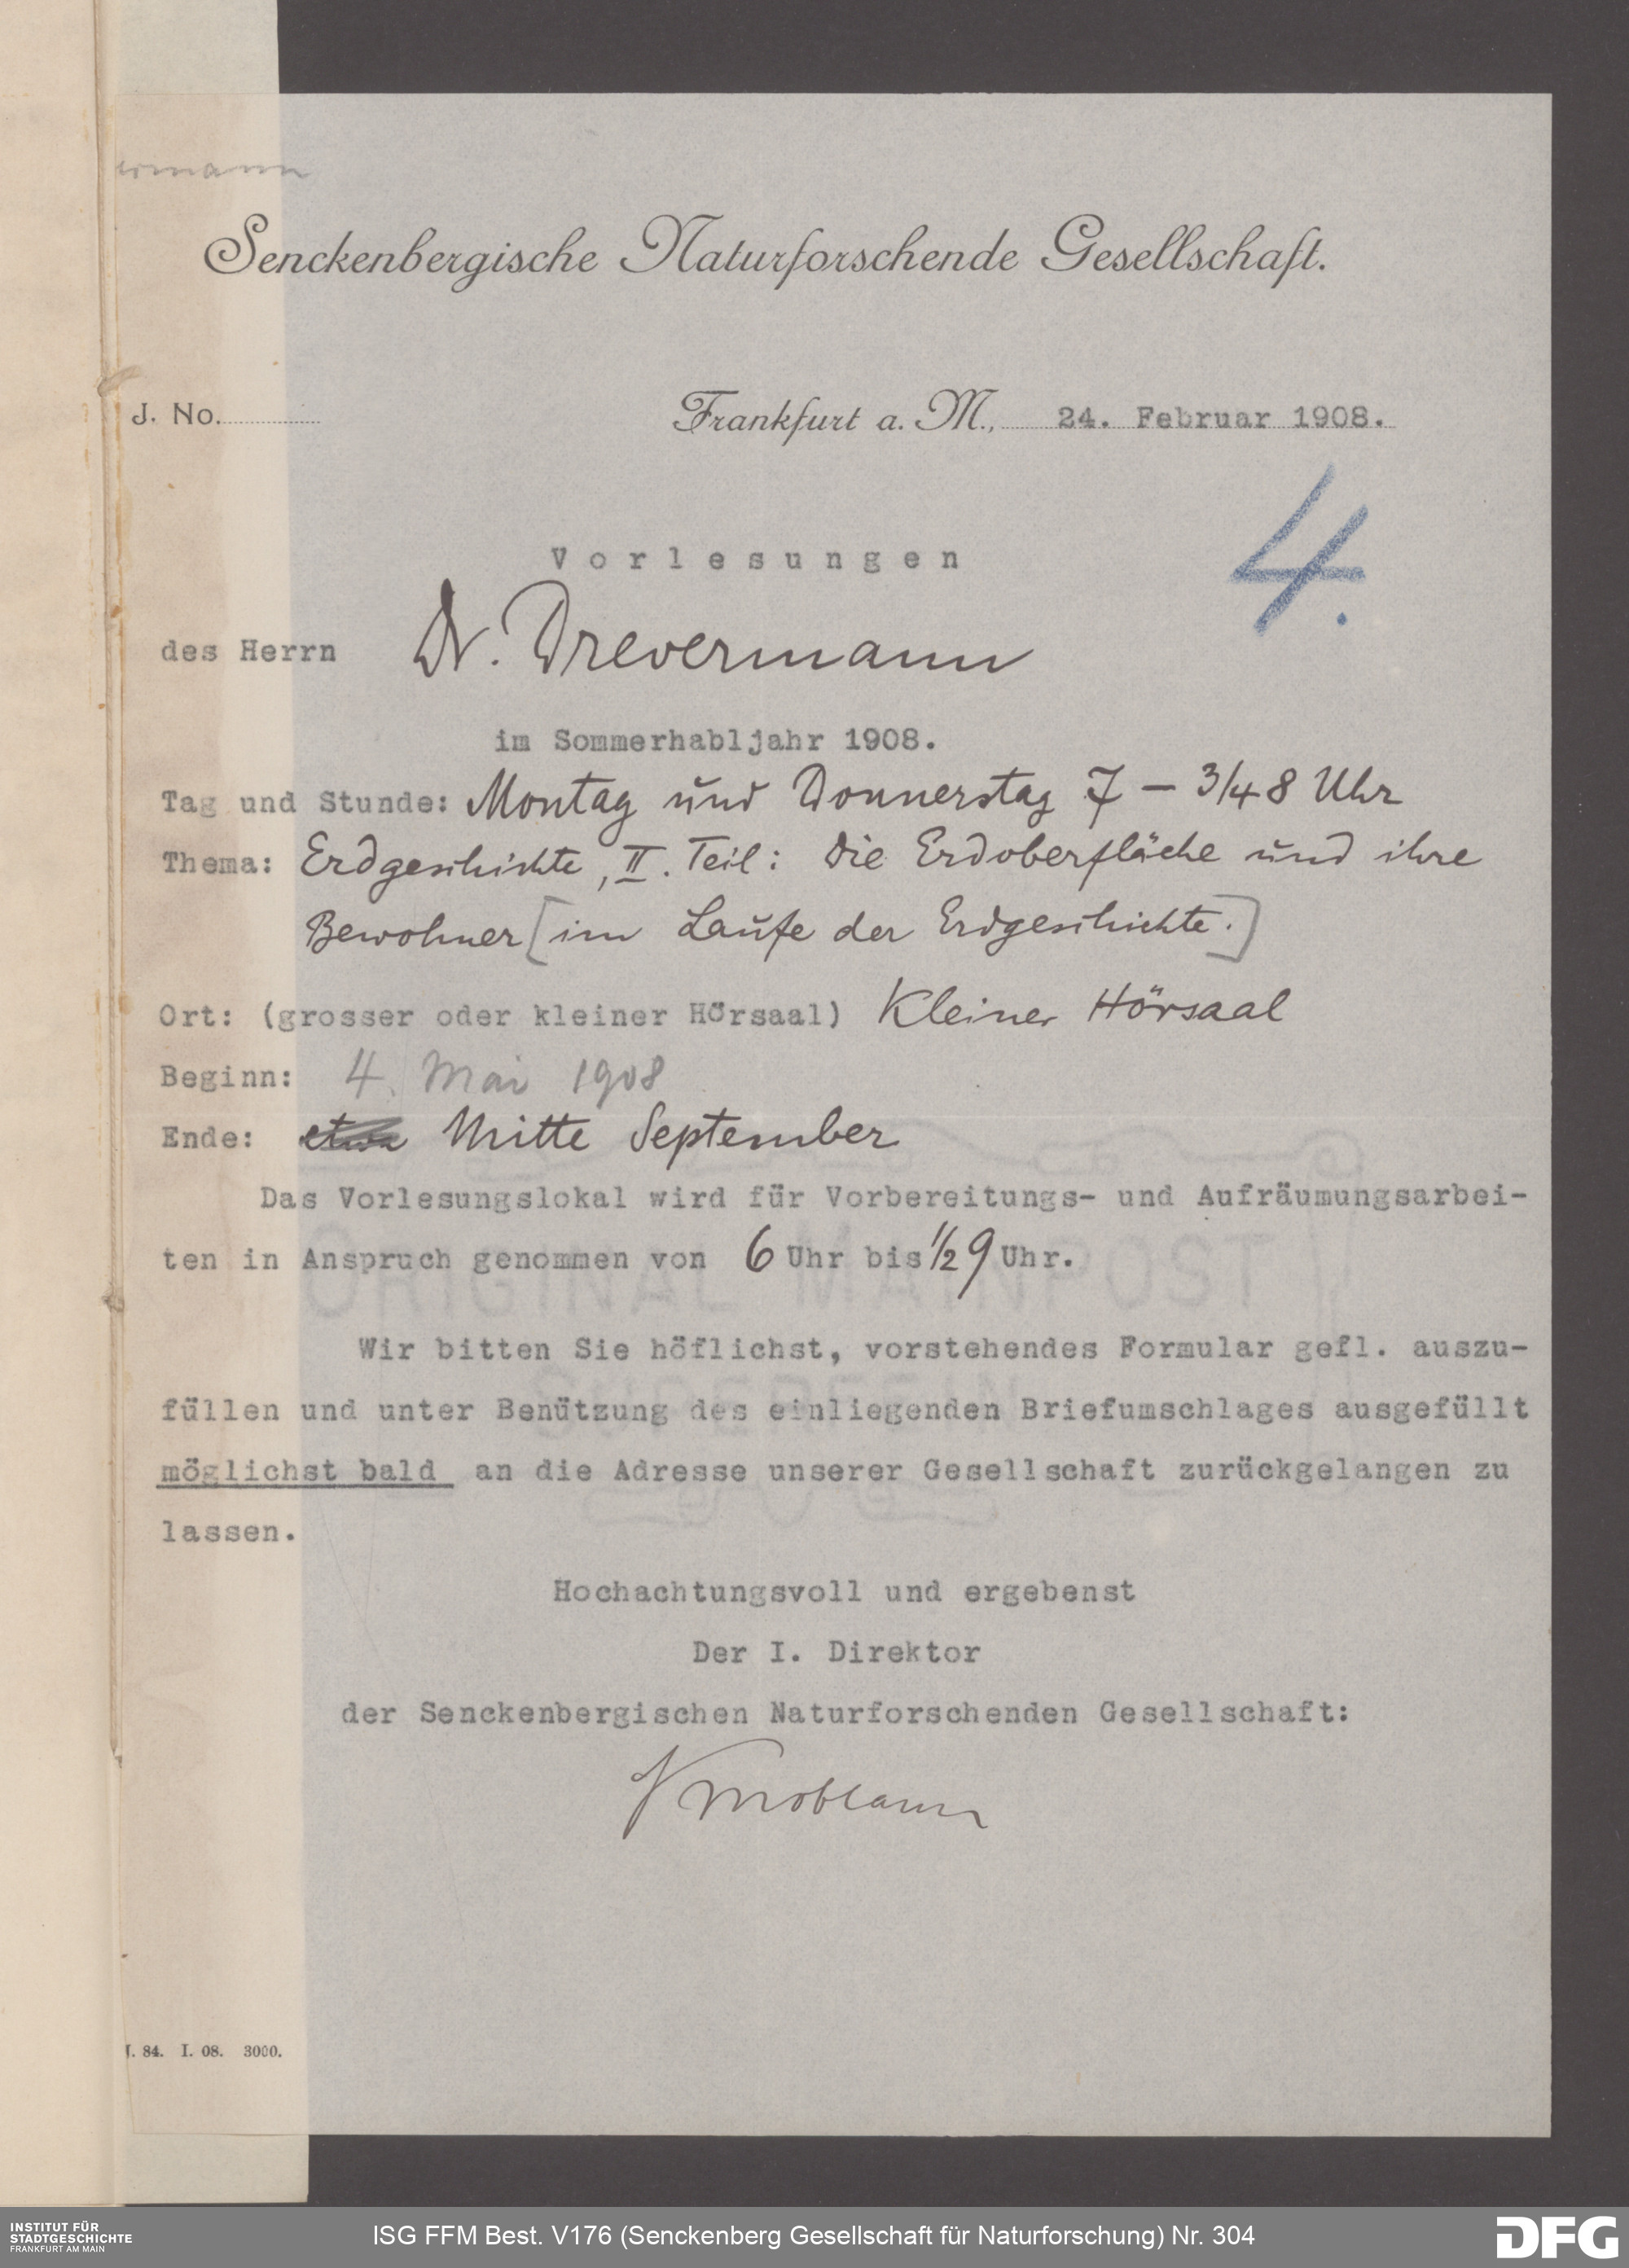 ermann
Senckenbergische Naturforschende Gesellschaft.
J. No.
Frankfurt a. M., 24. Februar 1908.
4.
Vorlesungen
des Herrn Dr. Drevermann
im Sommerhabljahr 1908.
Tag und Stunde: Montag und Donnerstag 7 – 3/4 8 Uhr
Thema: Erdgeschichte, II. Teil: Die Erdoberfläche und ihre
Bewohner [im Laufe der Erdgeschichte.]
Ort: (grosser oder kleiner Hörsaal) Kleiner Hörsaal
Beginn: 4. Mai 1908
Ende: etwa Mitte September
Das Vorlesungslokal wird für Vorbereitungs- und Aufräumungsarbei-
ten in Anspruch genommen von 6 Uhr bis 1/2 9 Uhr.
ORIGINAL MAINPOST
Wir bitten Sie höflichst, vorstehendes Formular gefl. auszu-
füllen und unter Benützung des einliegenden Briefumschlages ausgefüllt
möglichst bald an die Adresse unserer Gesellschaft zurückgelangen zu
lassen.
Hochachtungsvoll und ergebenst
Der I. Direktor
der Senckenbergischen Naturforschenden Gesellschaft:
Knoblauch
84. I. 08. 3000.
INSTITUT FÜR
STADTGESCHICHTE
FRANKFURT AM MAIN
ISG FFM Best. V176 (Senckenberg Gesellschaft für Naturforschung) Nr. 304
DFG